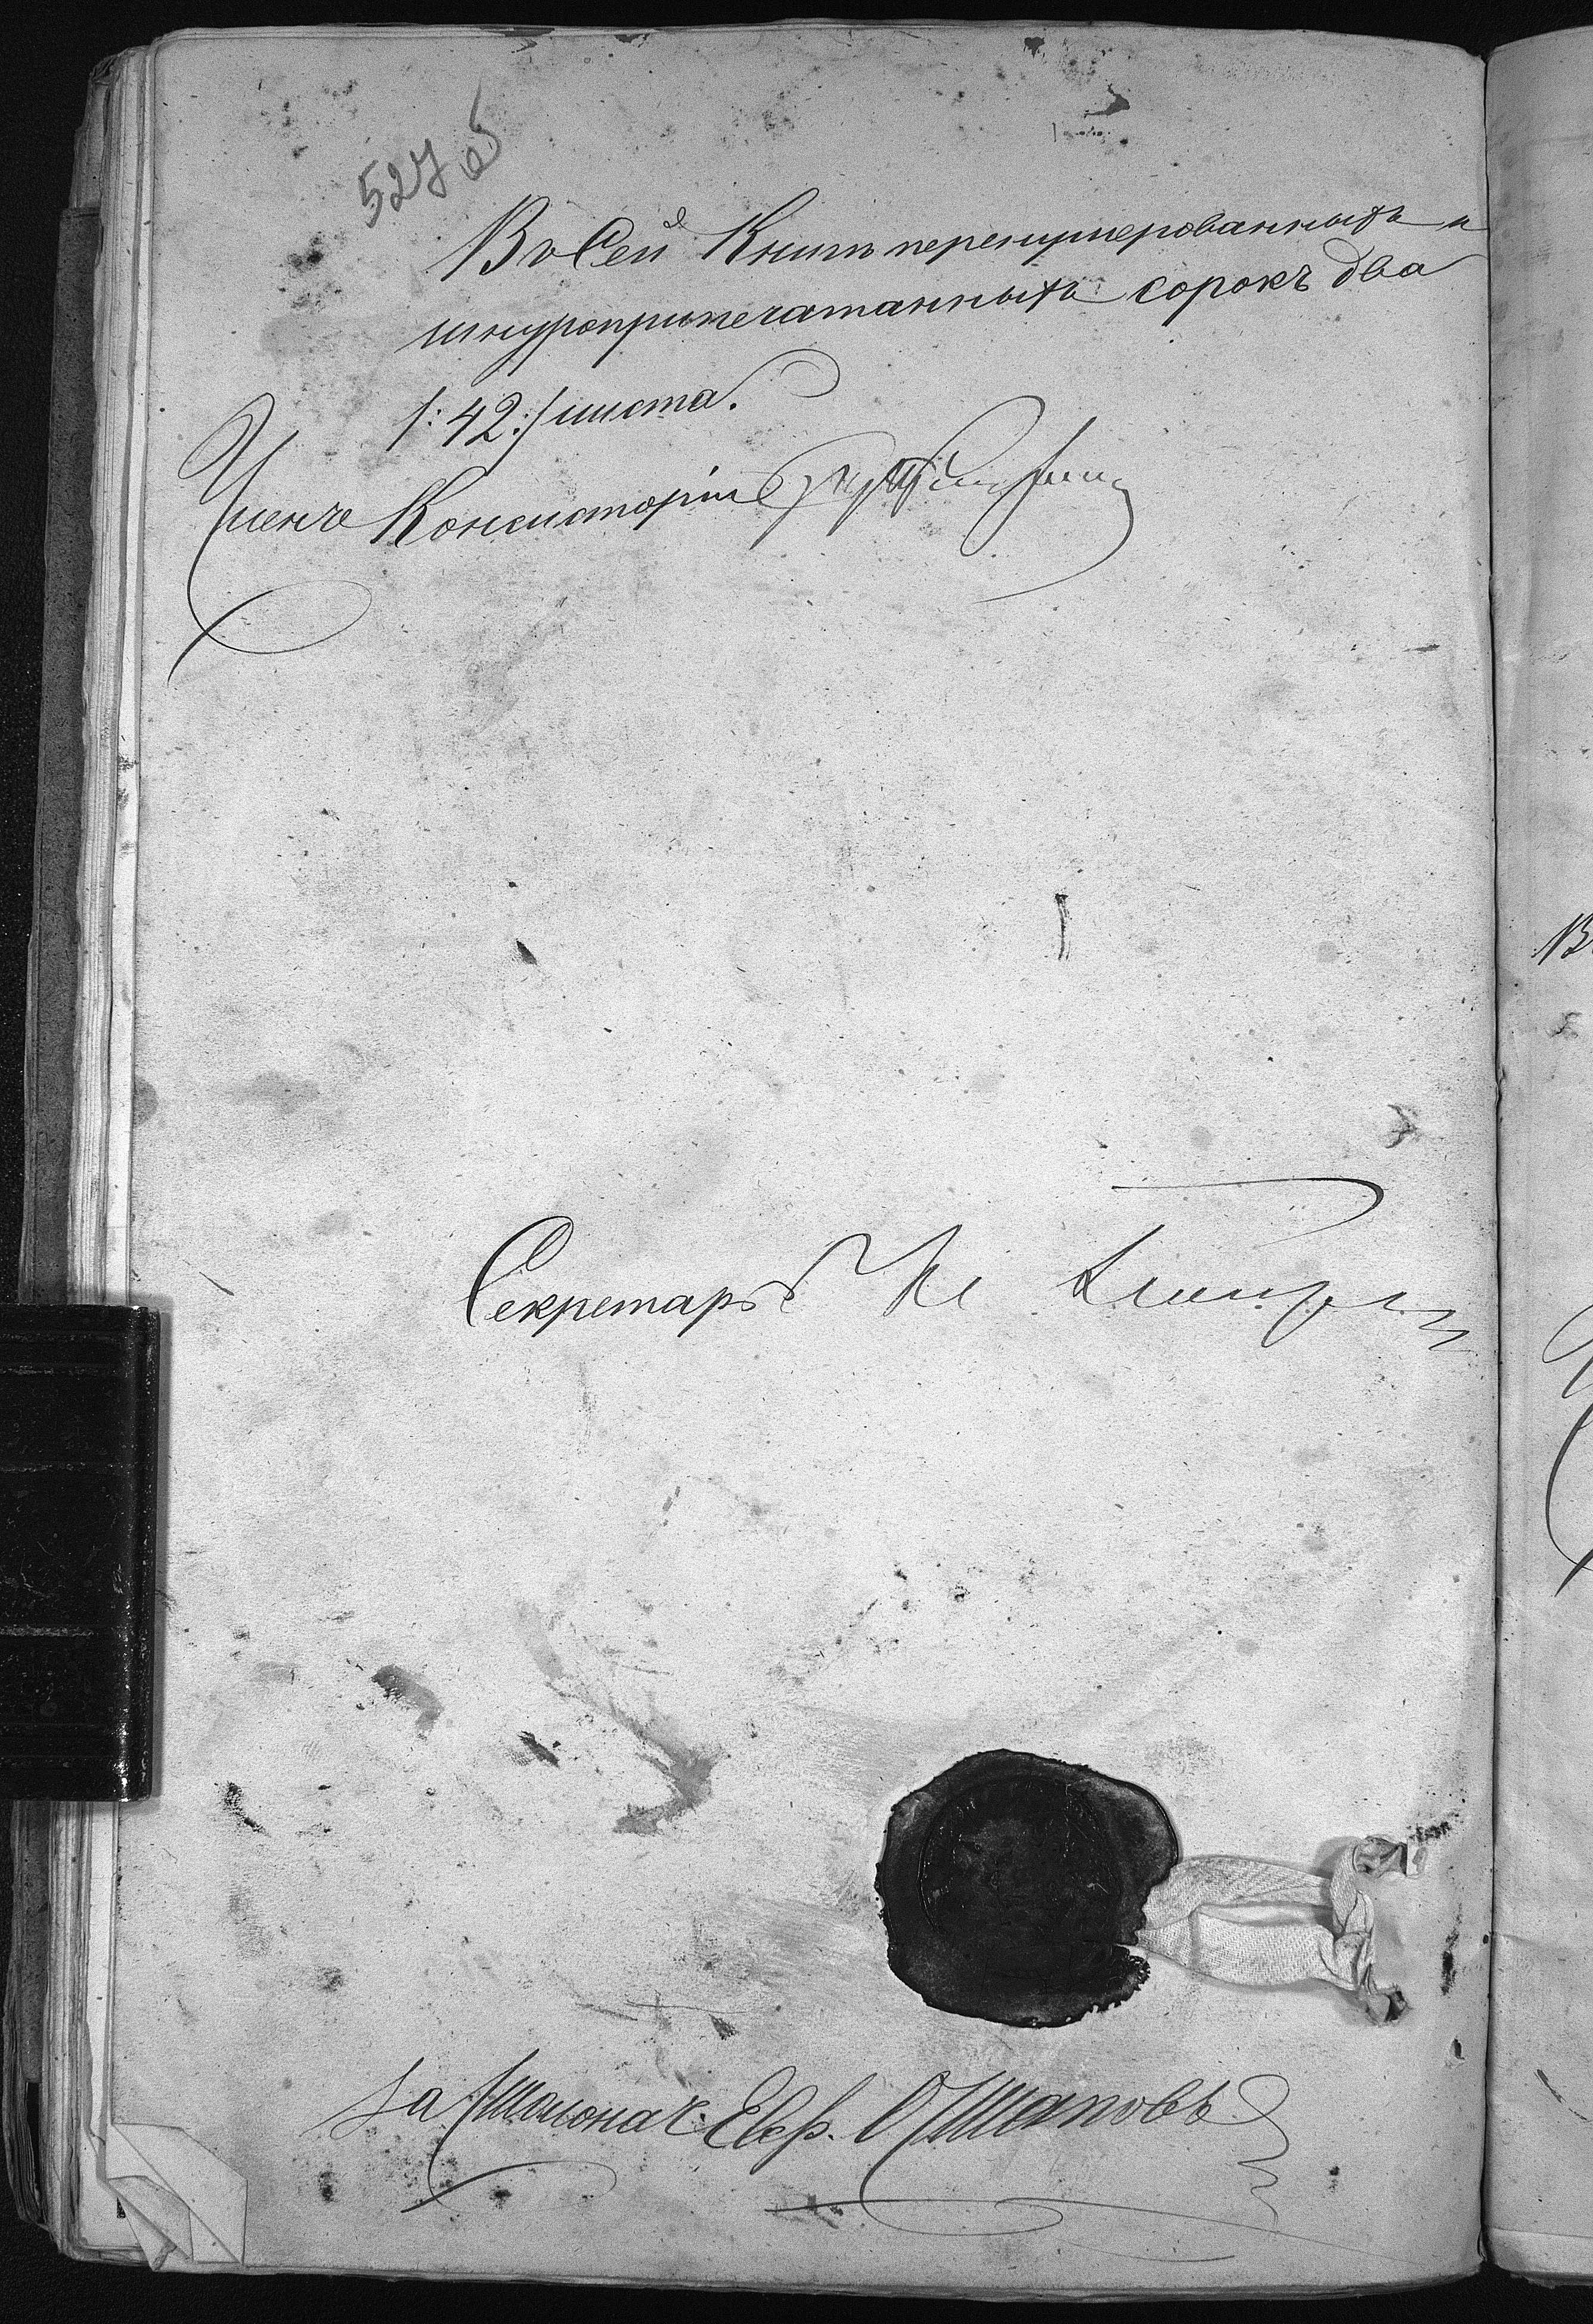 527 об
Въ Сей Книгѣ перенумерованныхъ и
шнуроприпечатанныхъ сорокъ два
/: 42 :/ листа.
Членъ Консисторіи
Секретарь
За Столонач. Евф. Остаповъ
В